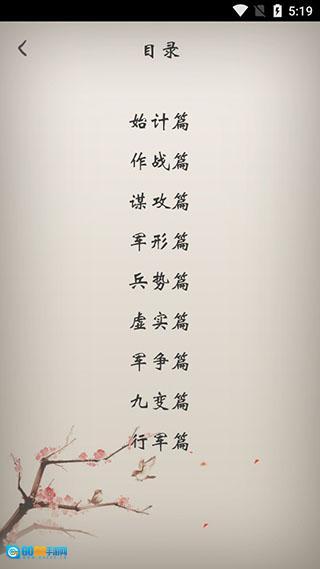 5:19
目录
始计篇
作战篇
谋攻篇
军形篇
兵势篇
虚实篇
军争篇
九变篇
行军篇